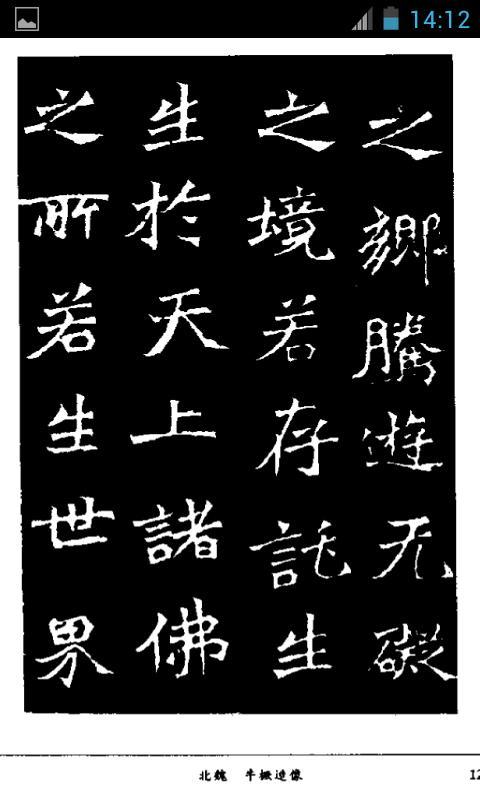 14:12
之鄉騰遊无礙
之境若存託生
生於天上諸佛
之所若生世界
北魏 牛橛造像
12